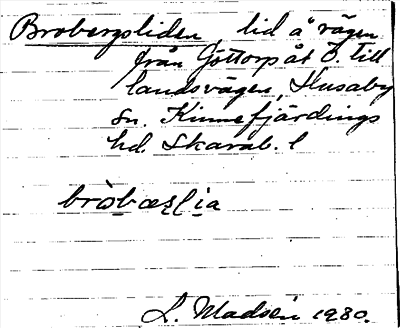 Brobergsliden, lid å vägen
från Göttorp åt Ö. till
landsvägen, Husaby
sn. Kinnefjärdings
hd. Skarab. l
bròbæɽia
L. Madsén 1980.